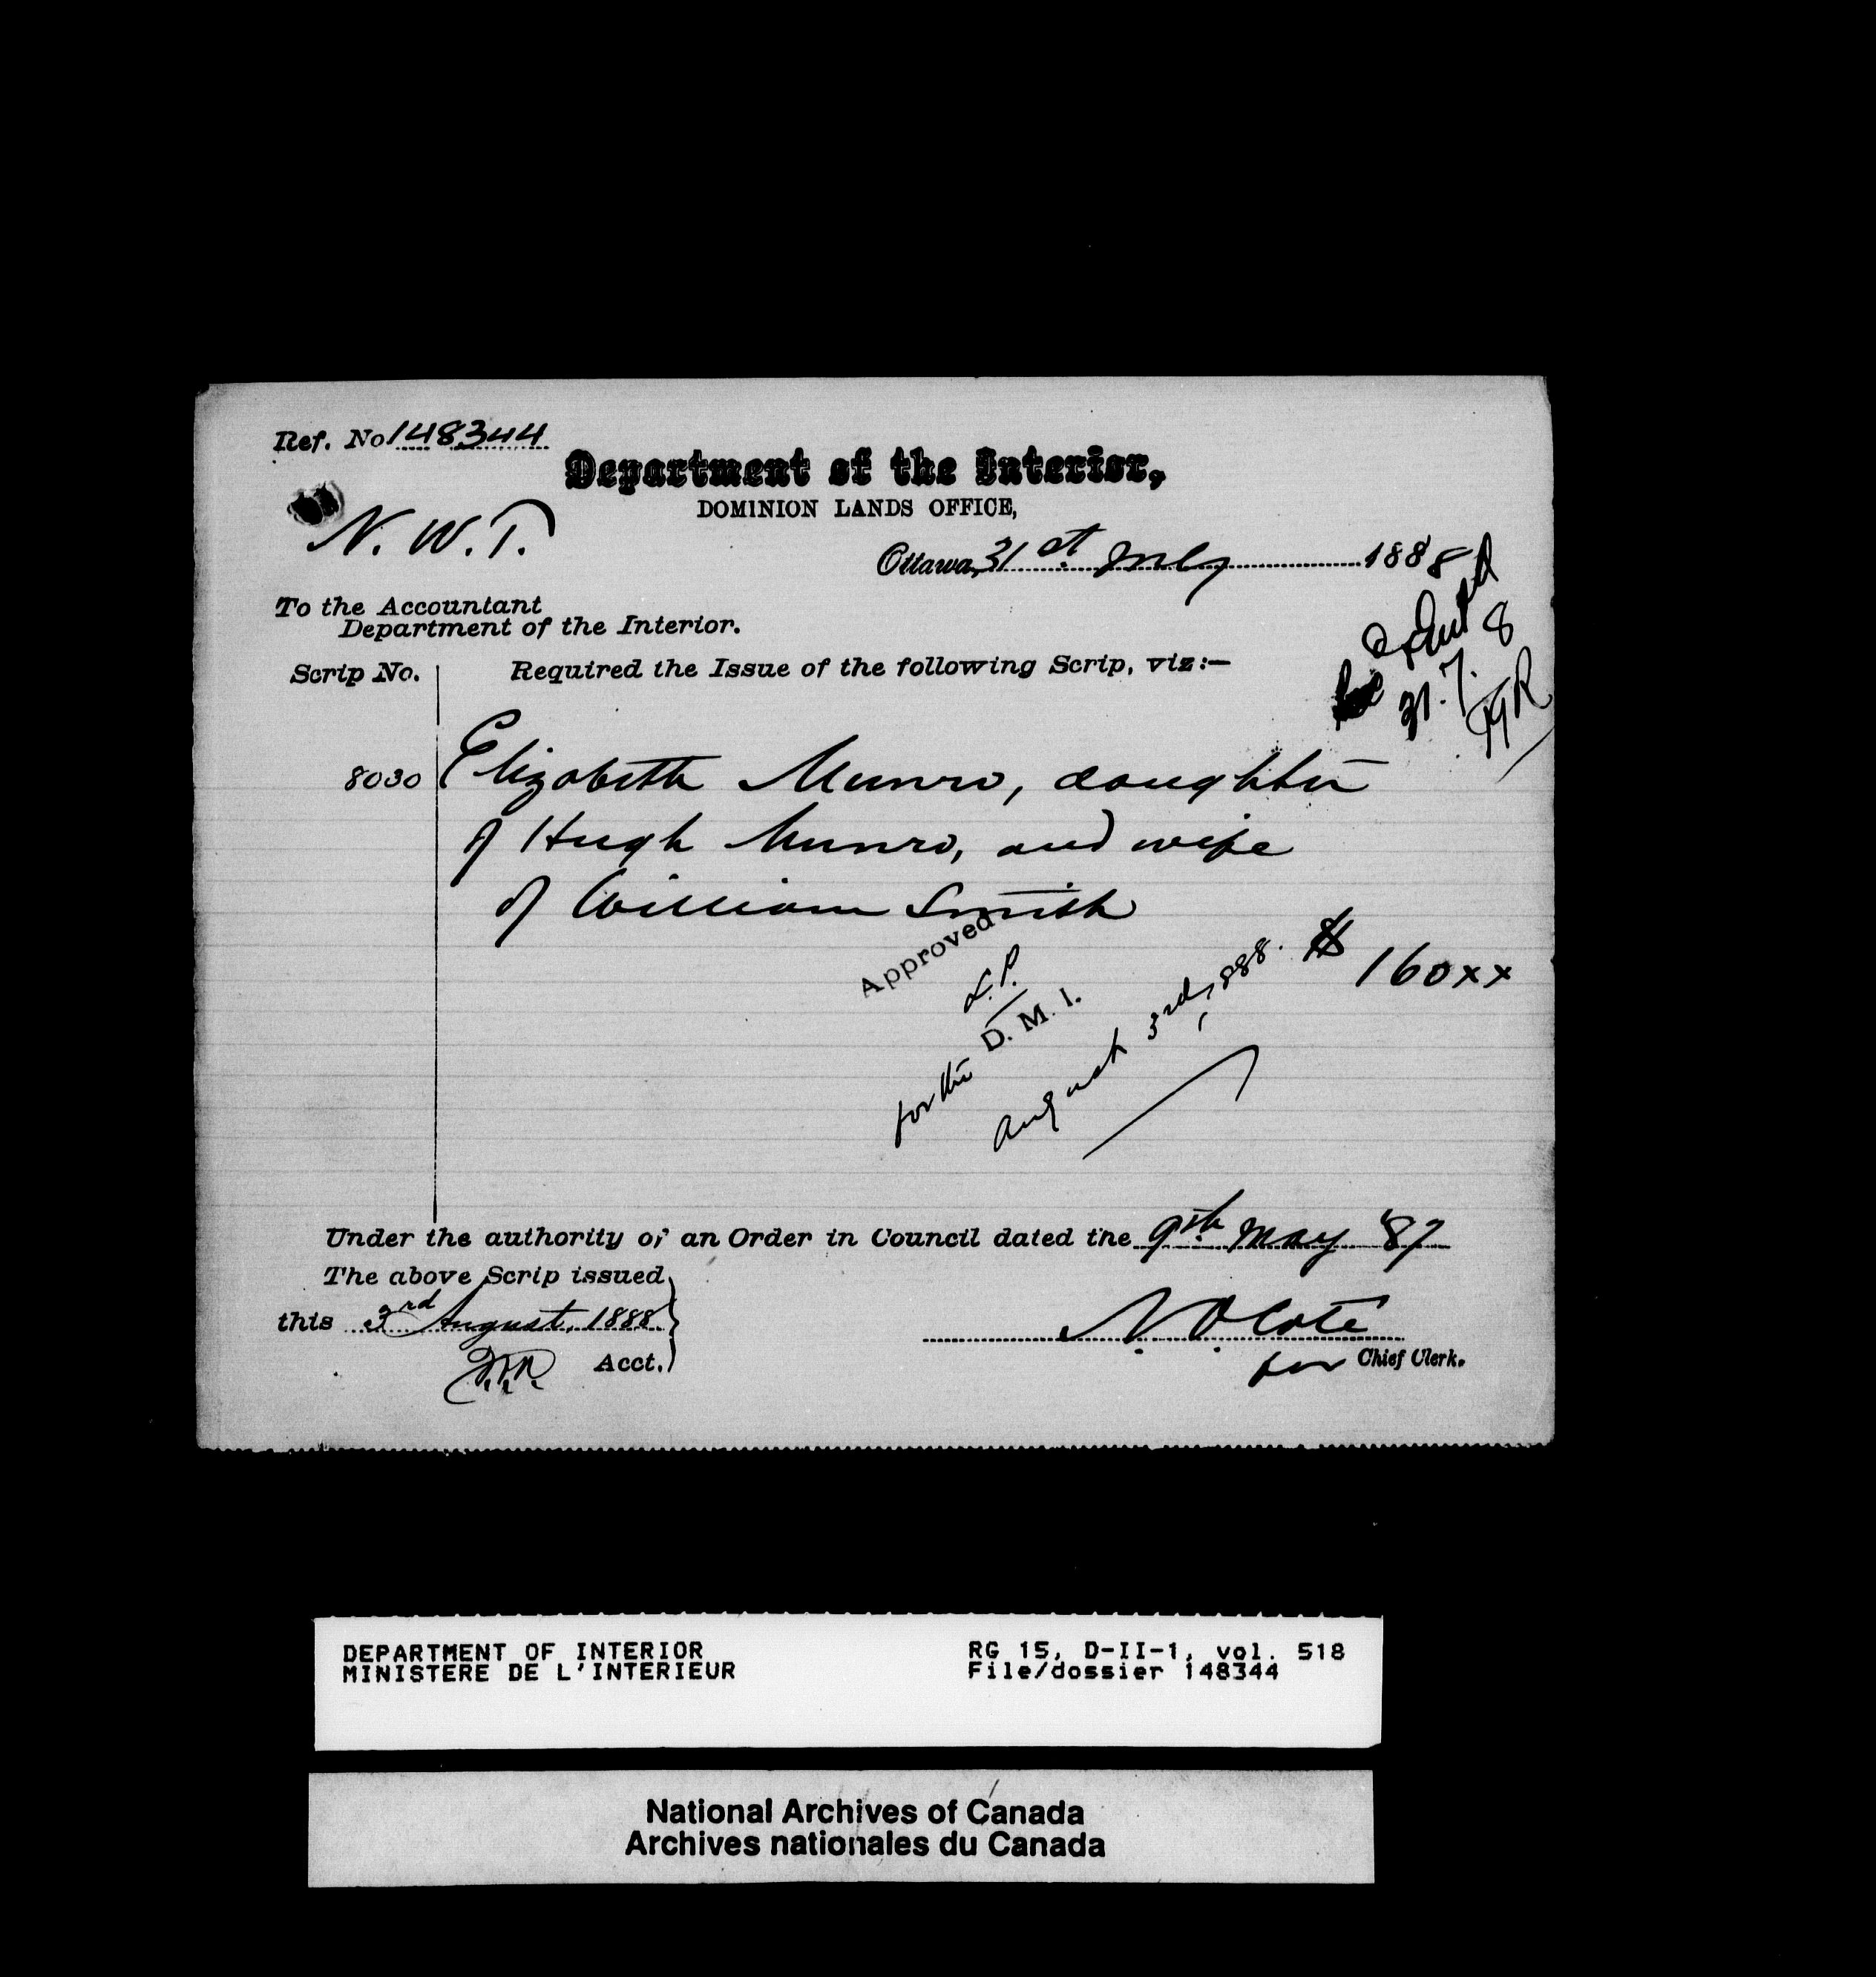 Ref. No 148344
Department of the Interior,
DOMINION LANDS OFFICE,
N. W. T.
Ottawa, 31st July 1888
To the Accountant
Department of the Interior.
Scrip No.
Required the Issue of the following Scrip, viz:—
31.7.8
8030 Elizabeth Munro, daughter
of Hugh Munro, and wife
of William Smith
Approved
$ 160xx
L.P.
D. M. I.
for the
August 3rd, 1888.
Under the authority of an Order in Council dated the 9th May '87
The above Scrip issued
this 3rd August, 1888
Acct.
N O Cote
for Chief Clerk.
DEPARTMENT OF INTERIOR
MINISTERE DE L'INTERIEUR
RG 15, D-II-1, vol. 518
File/dossier 148344
National Archives of Canada
Archives nationales du Canada